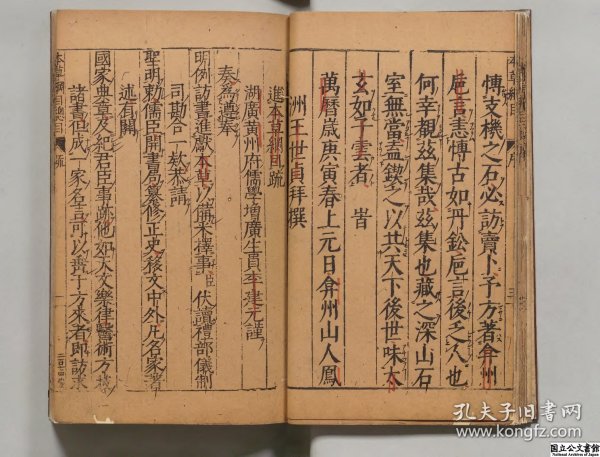 本草綱目
序
三
愽支機之石必訪賣卜予方著弇州
巵言恚愽古如丹鈆巵言後乏人也
何幸覩玆集哉玆集也藏之深山石
室無當盍鍥之以共天下後世味太
玄如子雲者 旹
萬曆歲庚寅春上元日弇州山人鳳
洲王世貞拜撰
進本草綱目疏
湖廣黃州府儒學增廣生員李建元謹
奏為遵奉
明例訪書進獻本草以備采擇事臣伏讀禮部儀制
司勘合一款恭請
聖明敕儒臣開書局纂修正史移文中外凡名家著
述有關
國家典章及紀君臣事跡他如天文樂律醫術方技
諸書但成一家名言可以垂于方來者即訪求
本草綱目總目
疏
一
孔夫子旧书网
www.kongfz.com
国立公文書館
National Archives of Japan